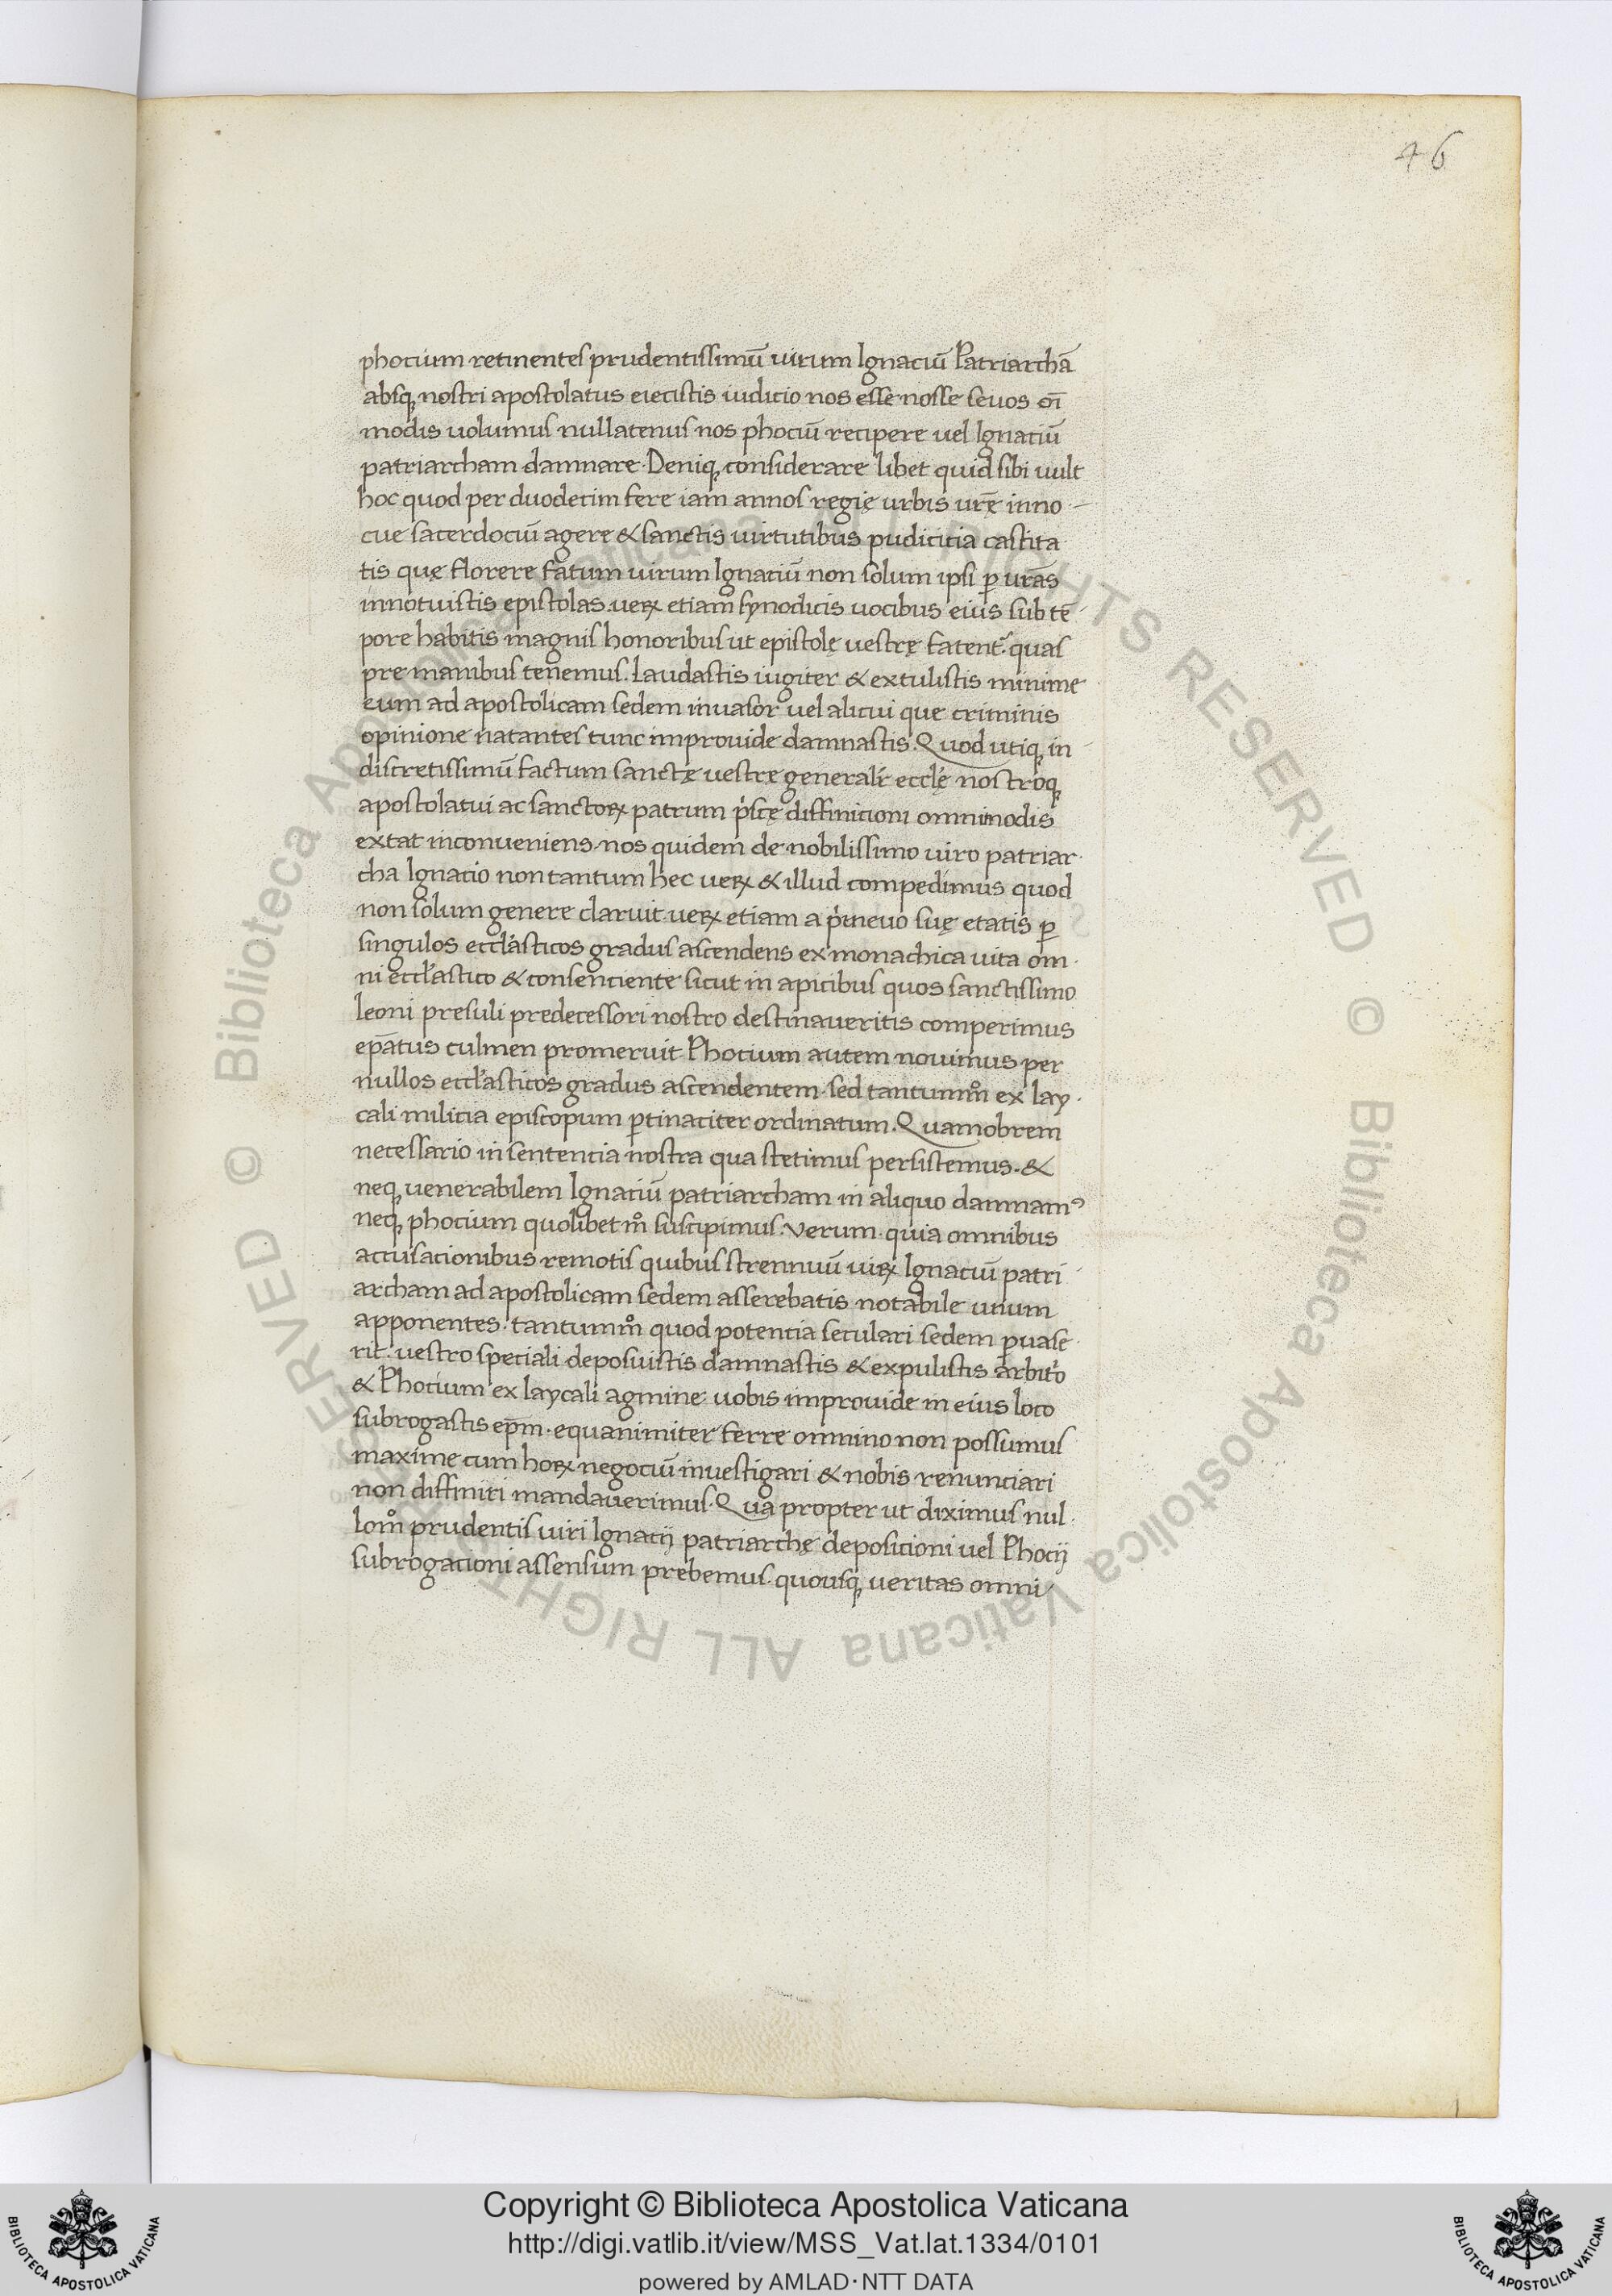 46
phocium retinentes prudentissimū uirum Ignaciū Patriarchā
absq; nostri apostolatus eiecistis iudicio nos esse nosse seuos oī
modis uolumus nullatenus nos phociū recipere uel Ignatiū
patriarcham damnare. Deniq; considerare libet quid sibi uult
hoc quod per duodecim fere iam annos regię urbis urē inno
cue sacerdociū agere & sanctis uirtutibus pudicitia castita
tis quę florere fatum uirum Ignatiū non solum ipsi ꝑ urās
innotuistis epistolas uerꝝ etiam synodicis uocibus eius sub tē
pore habitis magnis honoribus ut epistolę uestrę fatent᷑ quas
pre manibus tenemus. Laudastis iugiter & extulistis minime
eum ad apostolicam sedem inuasor uel alicui que criminis
opinione natantes tunc improuide damnastis. Quod utiq; in
discretissimū factum sanctę uestre generali ecclę nostroq;
apostolatui ac sanctorꝝ patrum pͥscę diffinicioni omnimodis
extat inconueniens. nos quidem de nobilissimo uiro patriar
cha Ignatio non tantum hec uerꝝ & illud compedimus quod
non solum genere claruit uerꝝ etiam a pͥmeuo suę etatis ꝑ
singulos eccl'asticos gradus ascendens ex monachica uita om
ni eccl'astico & consenciente sicut in apicibus quos sanctissimo
leoni presuli predecessori nostro destinaueritis comperimus
ep̄atus culmen promeruit Phocium autem nouimus per
nullos eccl'asticos gradus ascendentem. sed tantummͦ ex lay
cali milicia episcopum ꝑtinaciter ordinatum. Quamobrem
necessario in sentencia nostra qua stetimus persistemus. &
neq; uenerabilem Ignatiū patriarcham in aliquo damnamꝰ
neq; phocium quolibet mͦ suscipimus. Verum quia omnibus
accusacionibus remotis quibus strennuū uirꝝ Ignaciū patri
archam ad apostolicam sedem asserebatis notabile unum
apponentes. tantummͦ quod potencia seculari sedem ꝑuase
rit. uestro speciali deposuistis damnastis & expulistis arbitͥo
& Phocium ex laycali agmine uobis improuide in eius loco
subrogastis ep̄m. equanimiter ferre omnino non possumus
maxime cum horꝝ negociū inuestigari & nobis renunciari
non diffiniri mandauerimus. Qua propter ut diximus nul
lomͦ prudentis uiri Ignacij patriarchę deposicioni uel Phocij
subrogacioni assensum prebemus quousq; ueritas omni
© Biblioteca Apostolica Vaticana ALL RIGHTS RESERVED © Biblioteca Apostolica Vaticana ALL RIGHTS RESERVED
Copyright © Biblioteca Apostolica Vaticana
http://digi.vatlib.it/view/MSS_Vat.lat.1334/0101
powered by AMLAD·NTT DATA
BIBLIOTECA APOSTOLICA VATICANA
BIBLIOTECA APOSTOLICA VATICANA